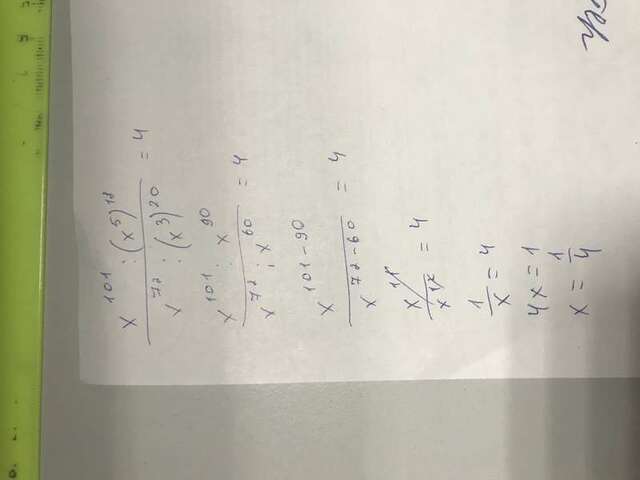 x^101 : (x^5)^18 / x^72 : (x^3)^20 = 4
x^101 : x^90 / x^72 : x^60 = 4
x^101-90 / x^72-60 = 4
x^11 / x^12 = 4
1/x = 4
4x = 1
x = 1/4